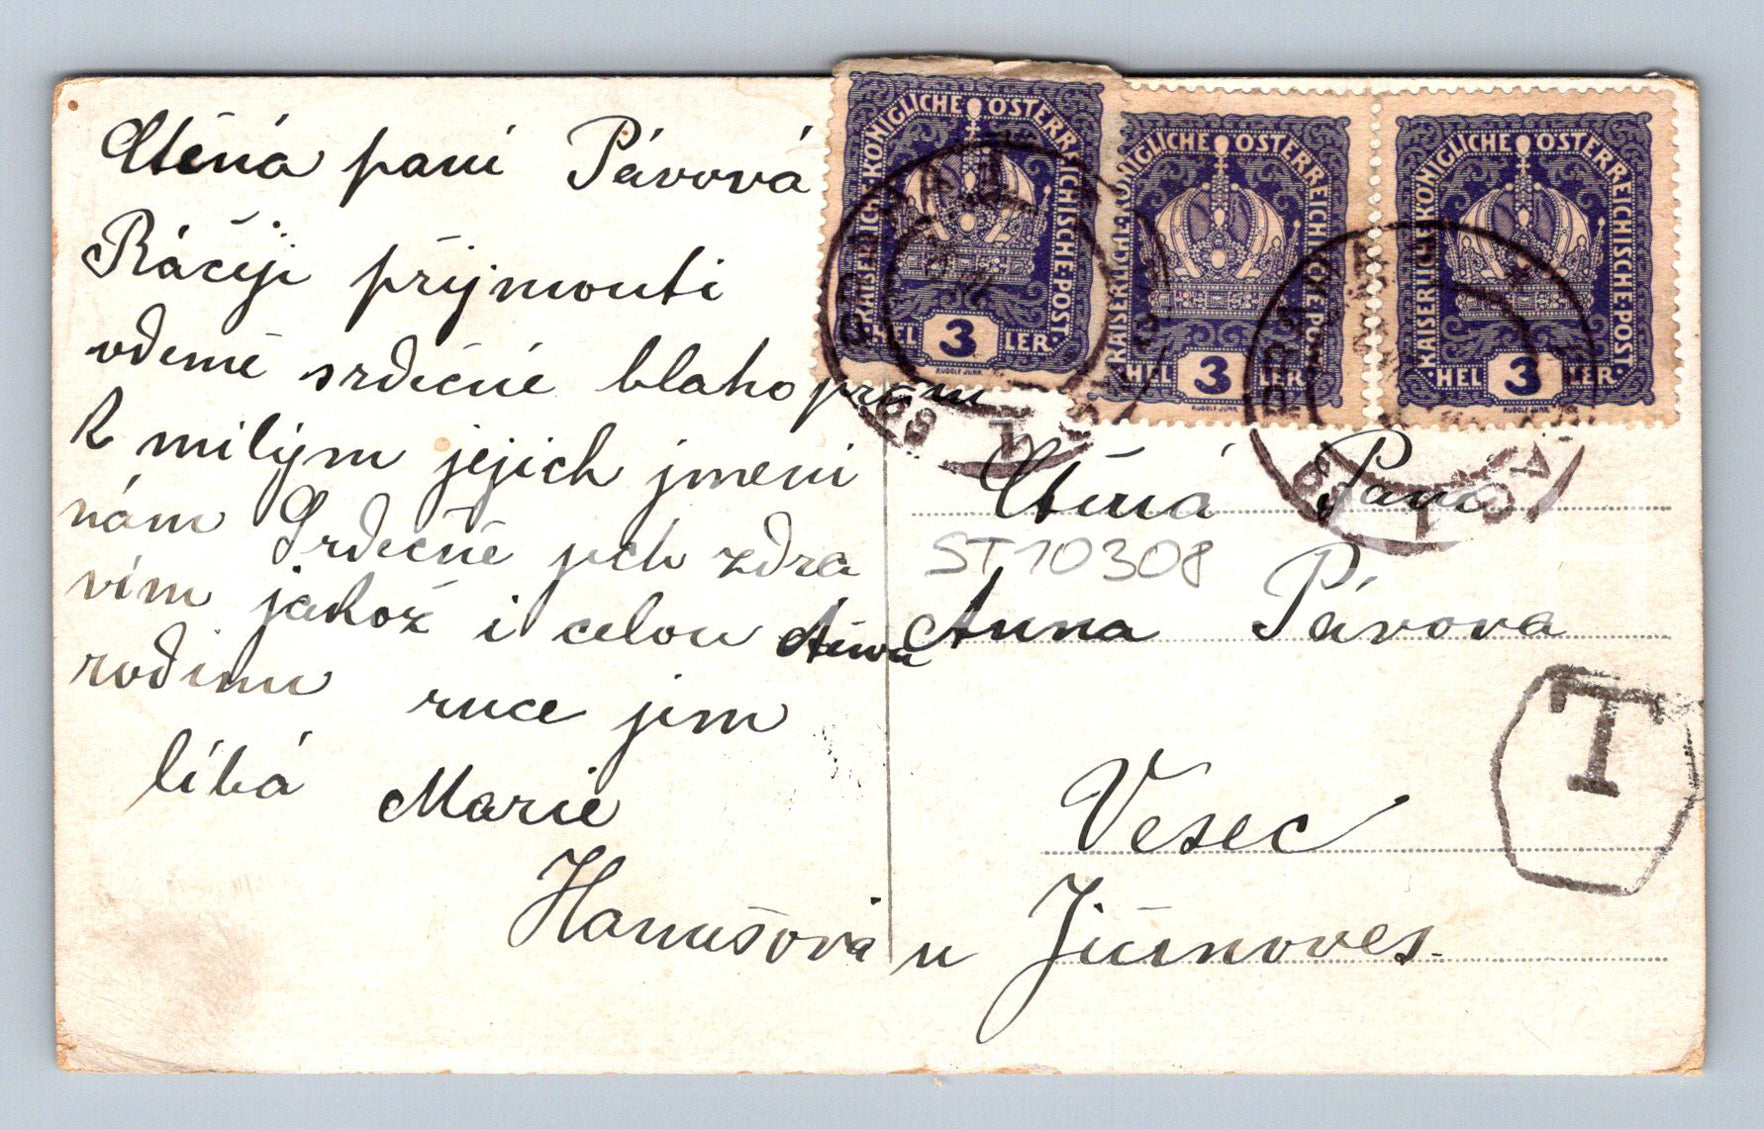 Ctěná paní Pávová
Ráčeji přijmouti
odemě srdečné blahopřání
k milým jejich jmeni
nám Srdečně jich zdra
vím jakož i celou ctěnou
rodinu ruce jim
líbá Marie
Hanušová
KAISERLICHE·KÖNIGLICHE ÖSTERREICHISCHE·POST·
HEL 3 LER
RUDOLF JUNK
KAISERLICHE·KÖNIGLICHE ÖSTERREICHISCHE·POST·
HEL 3 LER
RUDOLF JUNK
KAISERLICHE·KÖNIGLICHE ÖSTERREICHISCHE·POST·
HEL 3 LER
RUDOLF JUNK
Ctěná Paní
ST10308
Anna Pávova
T
Vesec
u Jičínoves.